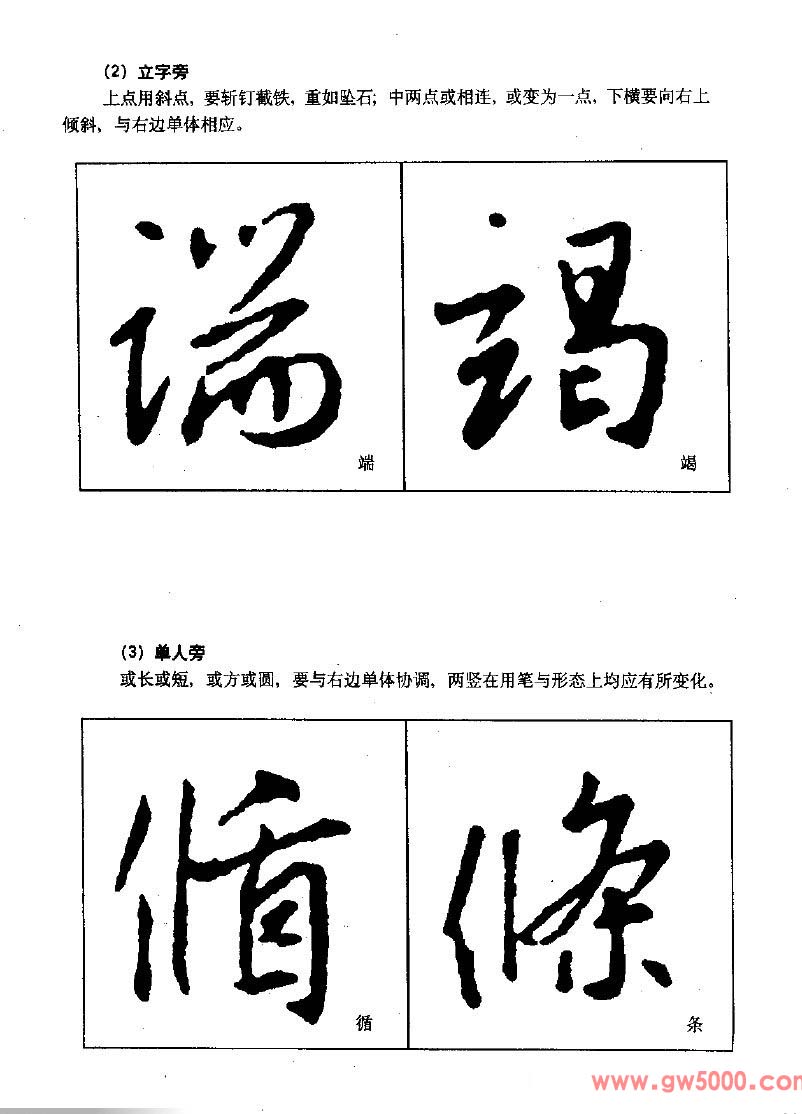 (2) 立字旁
上点用斜点，要斩钉截铁，重如坠石；中两点或相连，或变为一点，下横要向右上
倾斜，与右边单体相应。
端 竭
端 竭
(3) 单人旁
或长或短，或方或圆，要与右边单体协调，两竖在用笔与形态上均应有所变化。
循 條
循 条
www.gw5000.com